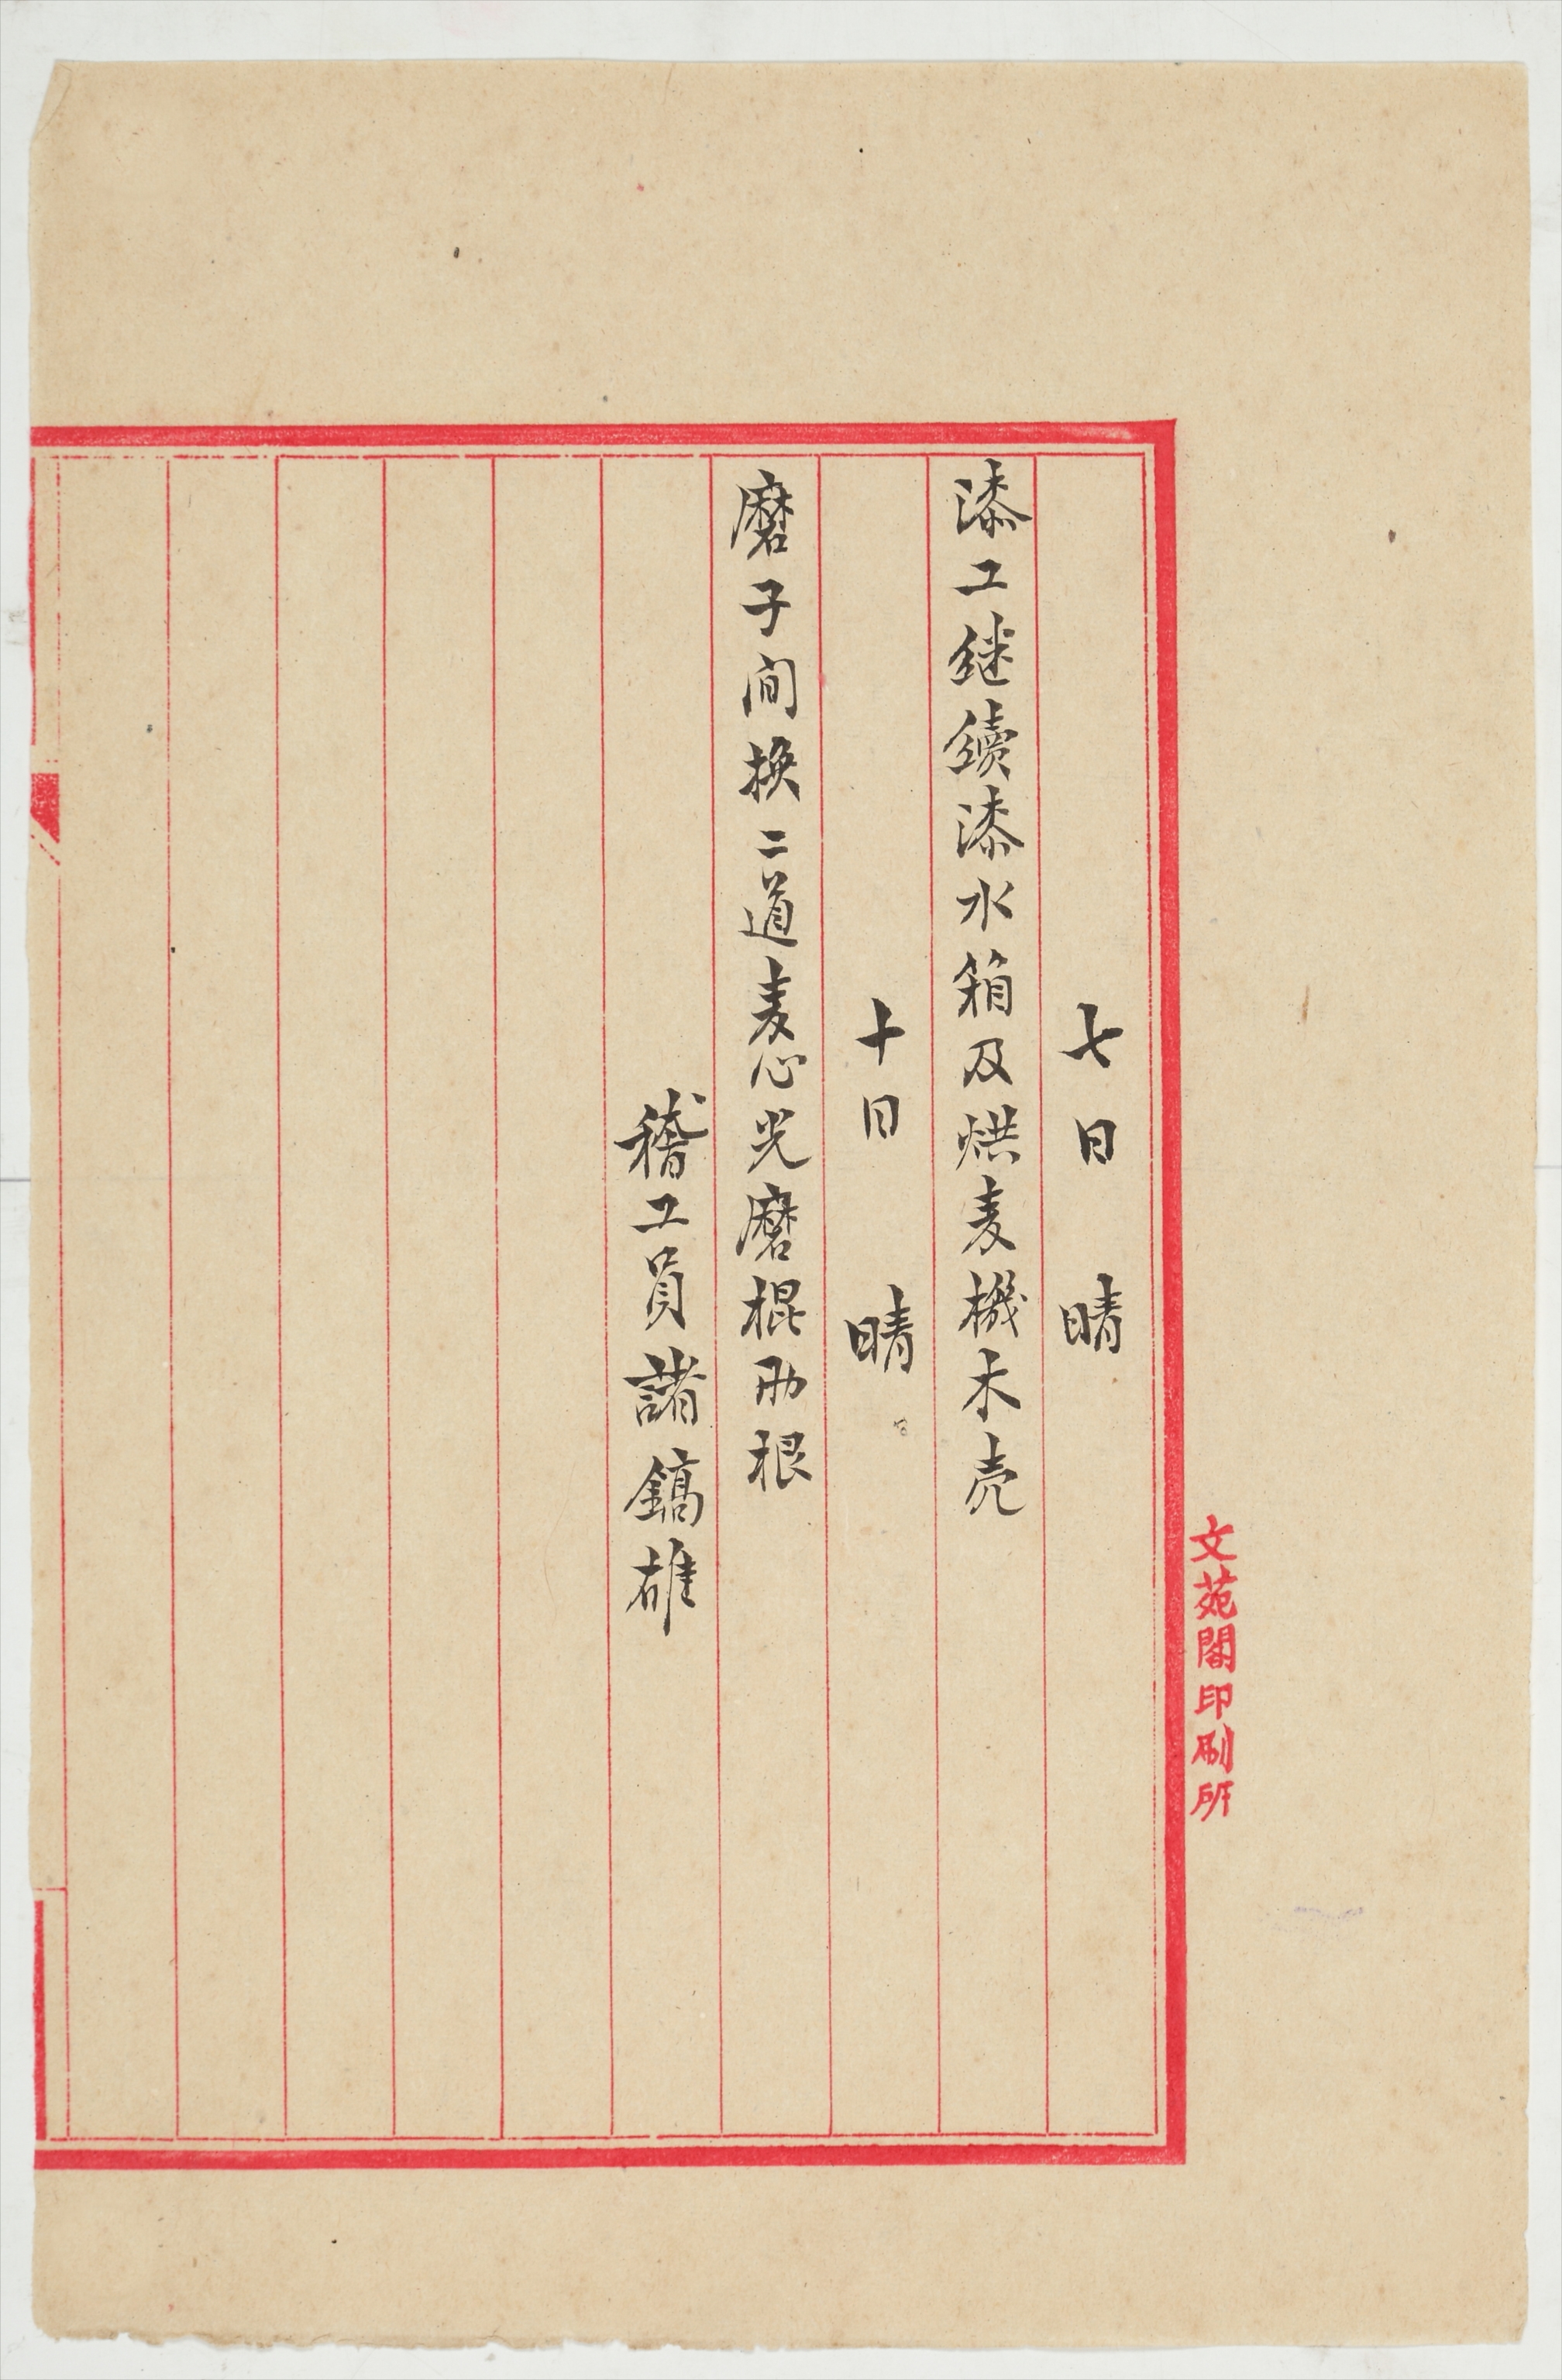 七日 晴
漆工継續漆水箱及烘麦機木壳
十日 晴
磨子间换二道麦心光磨棍両根
稽工員諸鎬雄
文苑閣印刷所